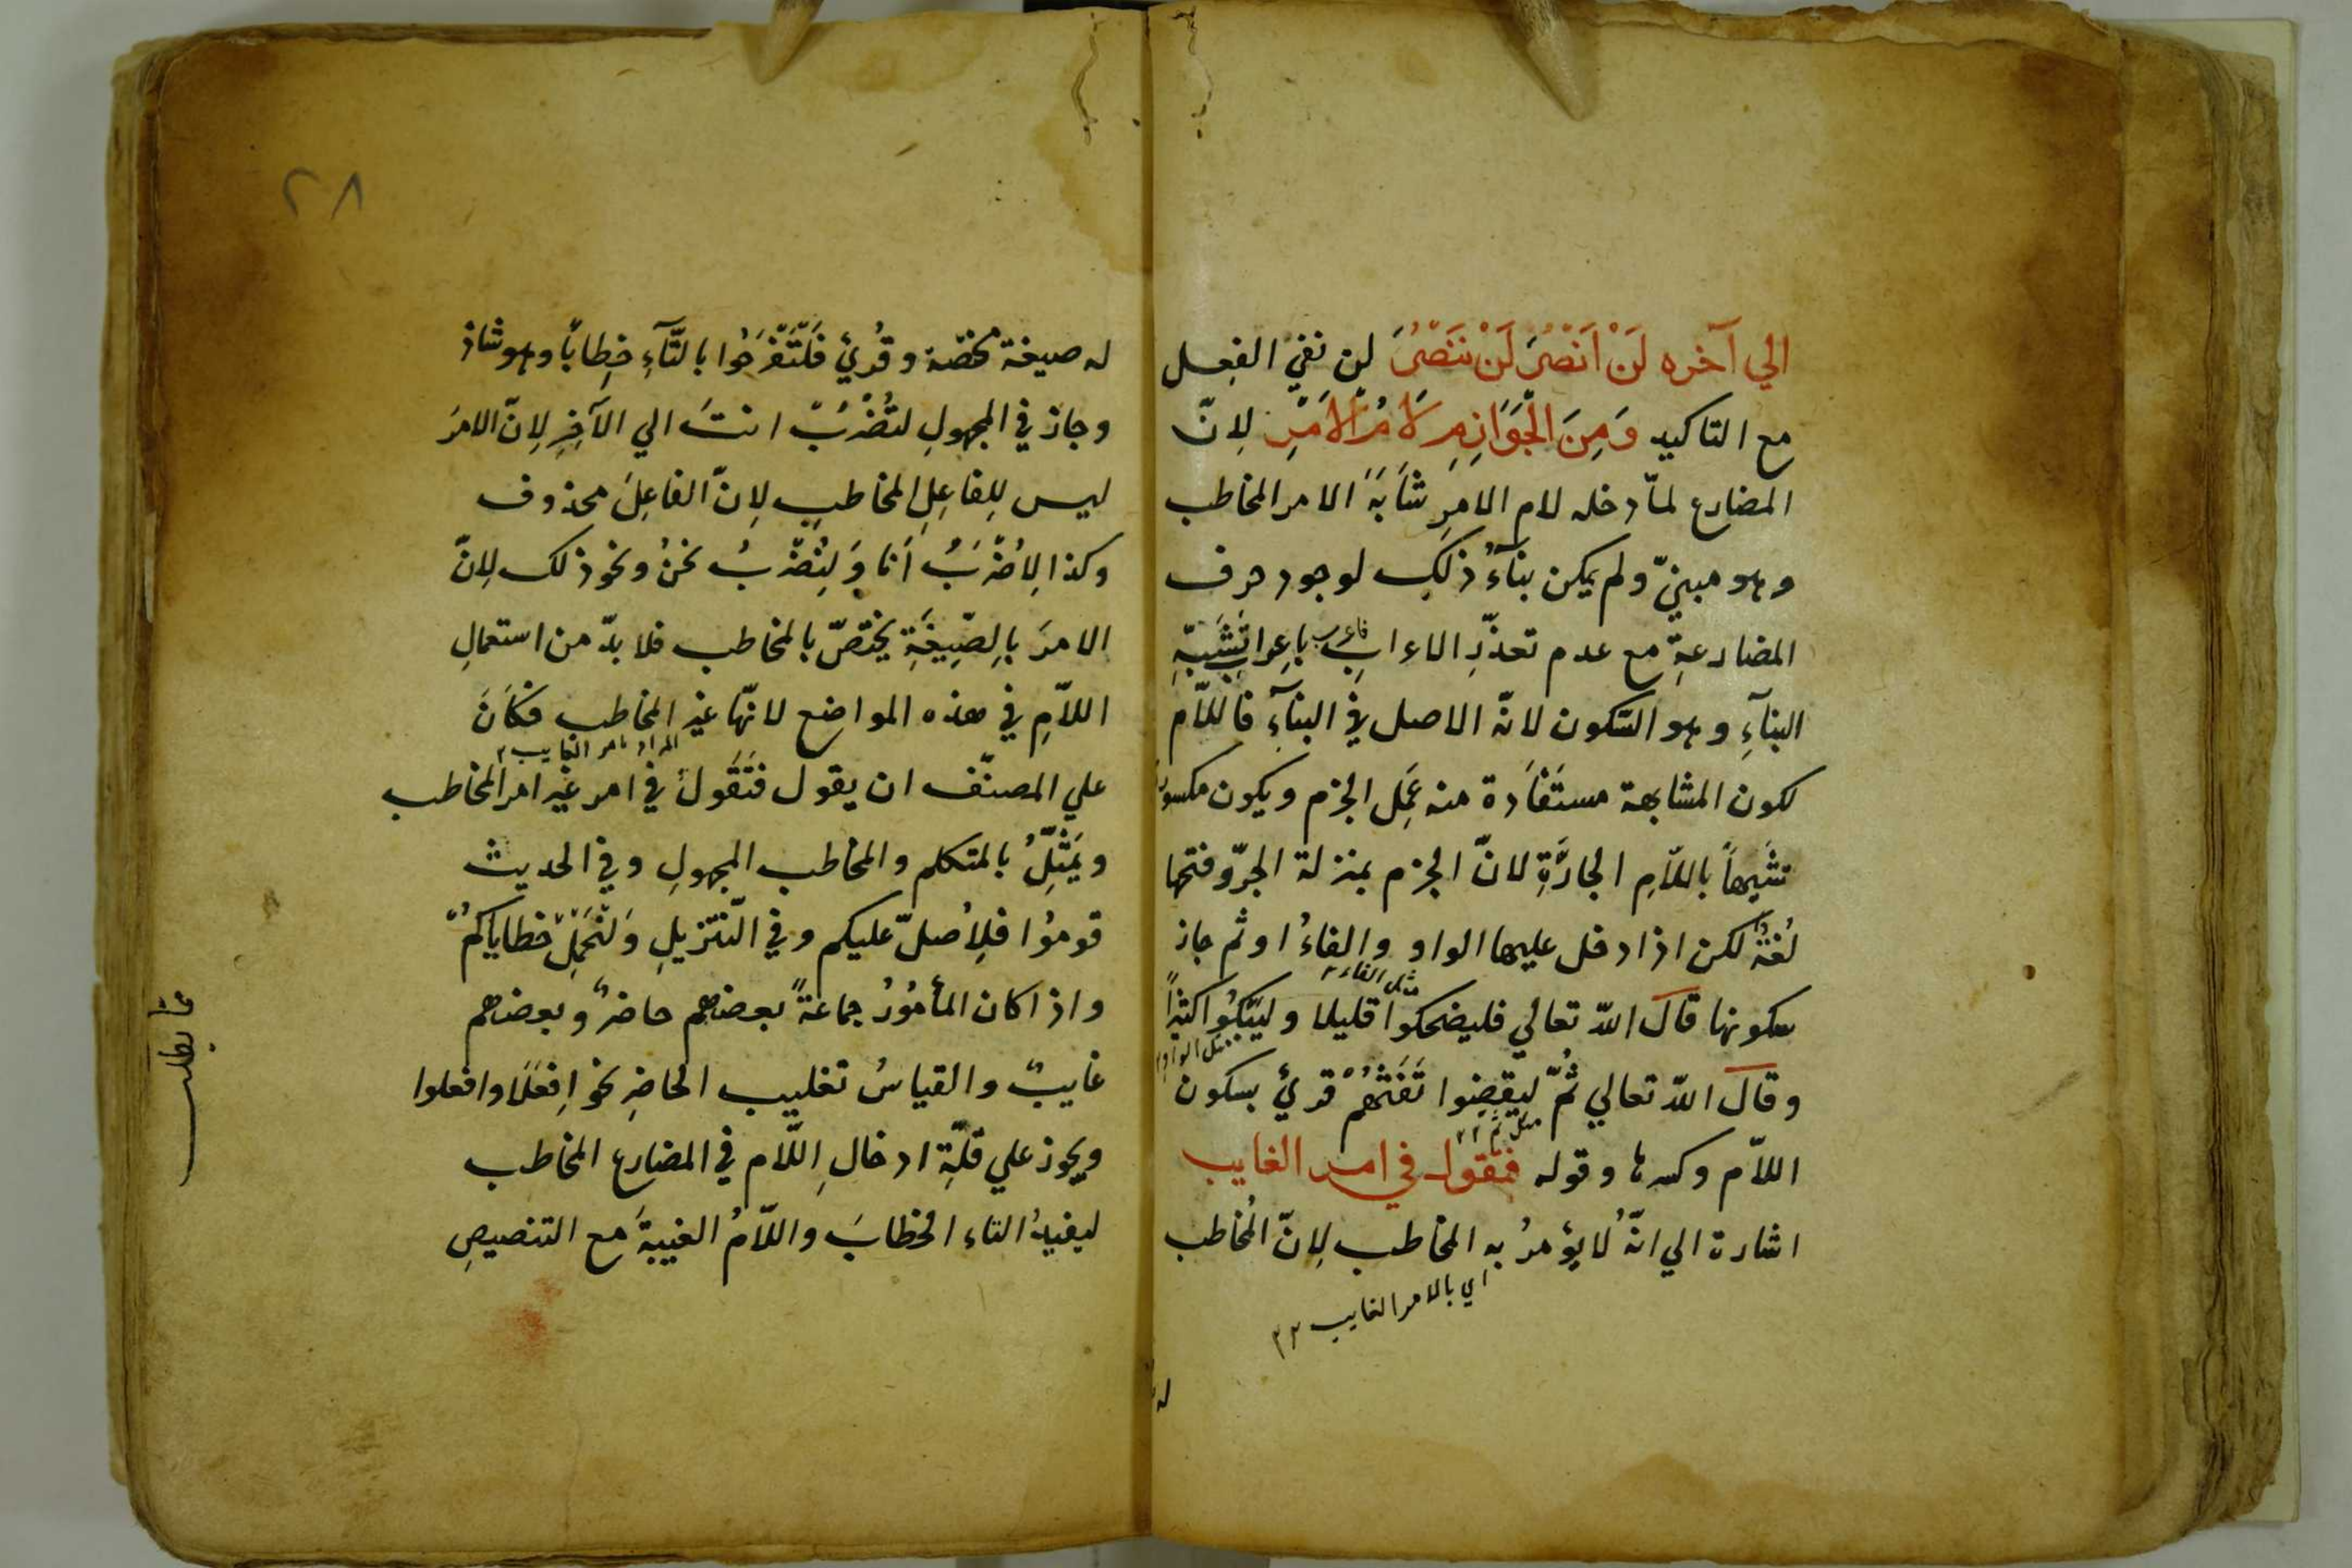 الي آخره لَنْ اَنْصُرَ لَنْ نَنْصُرَ لن نفي الفعل
مع التاكيد وَمِنَ الْجَوَازِمِ لَامُ الْاَمْرِ لِانّ
المضارع لمّا دخله لام الامرِ شَابَهَ الامر المخاطب
وهو مبنيّ ولم يمكن بناءُ ذلك لوجود حرف
المضارعةِ مع عدم تعذّرِ الاعرابِ فاعرب باِعرابٍ يُشبِهُ
البنآءِ وهو السّكون لانّه الاصل في البنآءِ فاللّام
لكون المشابهة مستَفَادة منه عَمِل الجزم ويكون مكسورة
تشبيهاً باللّامِ الجارّةِ لانّ الجزم بمنزلة الجرّ وفتحها
لُغَةٌ لكن اذا دخل عليها الواو والفاءُ او ثم جاز
سكونها قَالَ اللّه تعالي فليضحكوا قليلا وليَبْكُوا كثيراً
مثل الفاء
مثل الواو
وقالَ اللّه تعالي ثُمّ ليِقضِوا تَفَثَهُمْ قريَ بسكون
مثل ثم
اللّام وكسرها وقوله فتقول في امر الغايب
اشارة الي انّهُ لا يؤمرُ به المخاطب لِانّ المُخاطب
اي بالامر الغايب
٢٨
له صيغة مختصّة وقُرِئَ فَلْتَفْرَحُوا بالتّآءِ خِطاباً وهو شاذ
وجاز في المجهولِ لتُضْرَبْ انتَ الي الآخِرِ لِانّ الامرَ
ليس لِلفاعِلِ المخاطبِ لِانّ الفاعِلَ محذوف
وكذا لِاُضْرَبْ اَنا وَلِنُضْرَبْ نحنُ ونحو ذلك لِانّ
الامرَ بالِصّيِغَةِ يختصّ بالمخاطب فلا بدّ من استعمالِ
اللاّمِ في هذه المواضع لانّها غير المخاطب فكَانَ
المراد بامر الغايب
علي المصنّف ان يقول فَتَقُولُ في امر غير امر المخاطب
ويَمَثِّلُ بالمتكلم والمخاطب المجهولِ وفي الحديث
قوموُا فلِاُصلّ عليكم وفي التّنزيلِ وَلنَحْمِلْ خطاياكمْ
واذا كان المأمُورُ جماعةً بعضهم حاضرٌ وبعضهم
غايبٌ والقياسُ تغليب الحاضِرِ نحو اِفعَلَا وافعلوا
ويجوز علي قلّةِ ادخالِ اللّام في المضارع المخاطب
ليفيدُ التاء الخطابَ واللّامُ الغيبةَ مع التنصيصِ